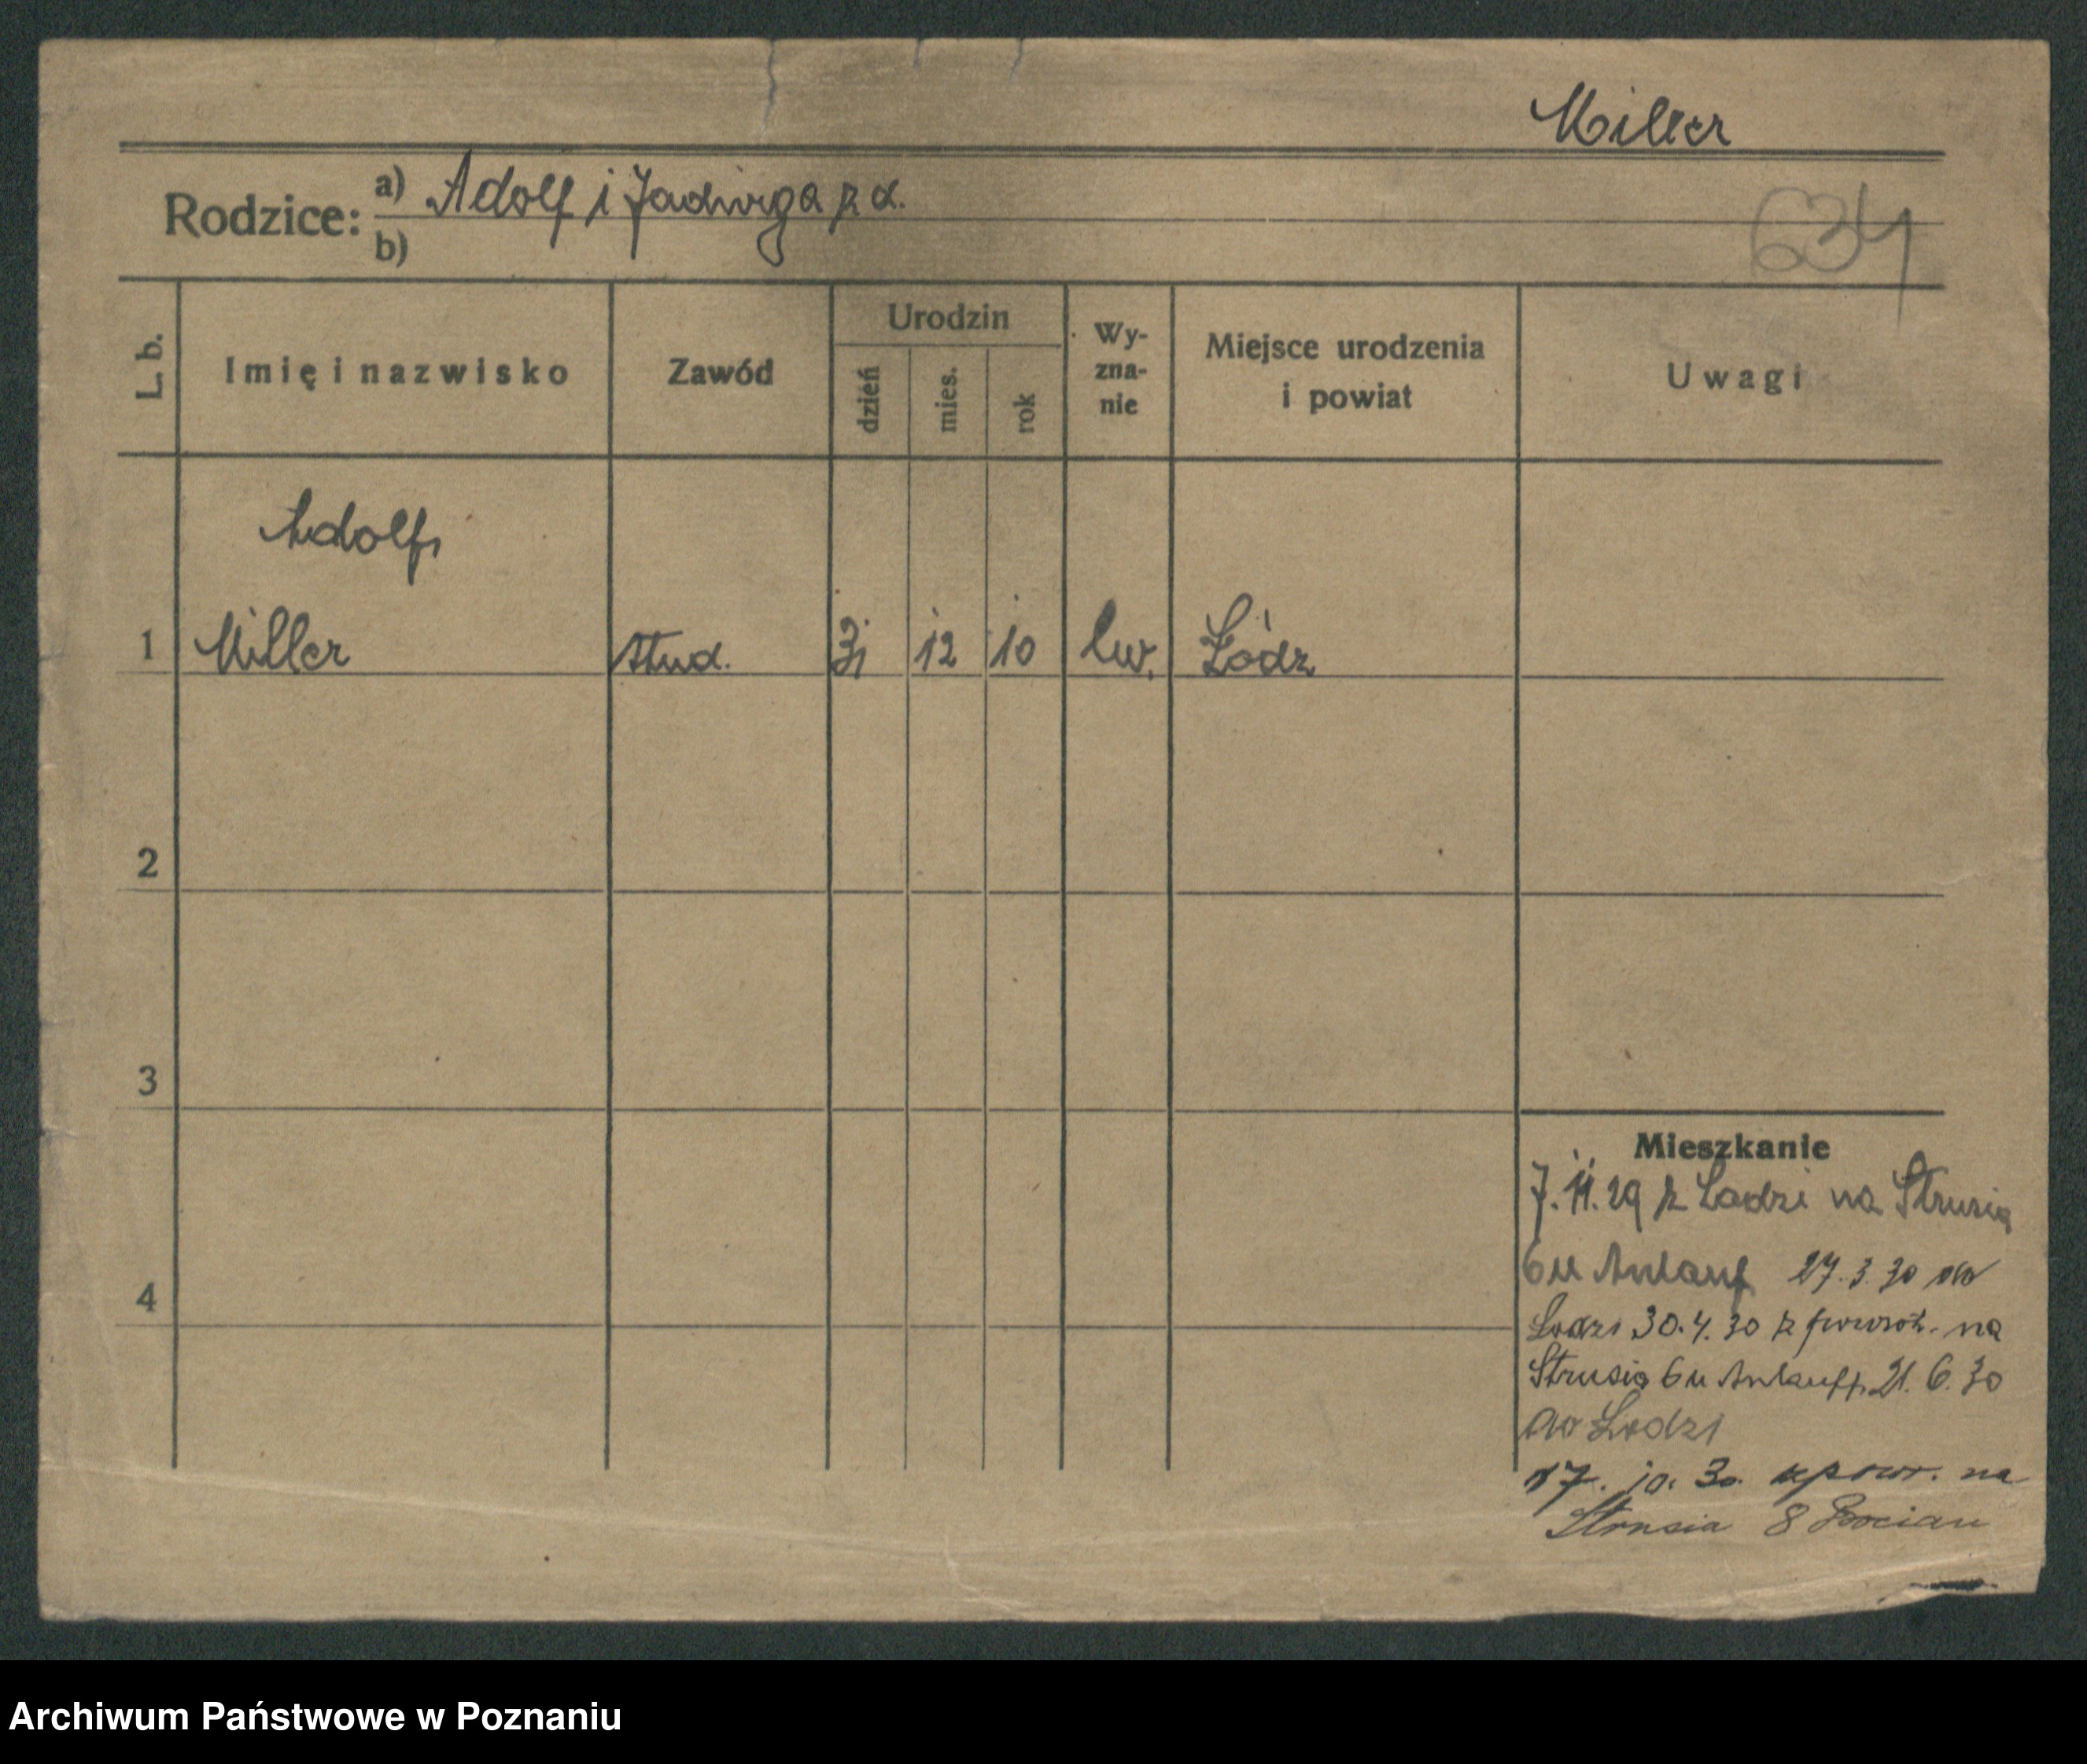 Miller
Rodzice: a) Adolf i Jadwiga z d.
b)
634
L. b. Imię i nazwisko Zawód Urodzin dzień mies. rok Wyzna-nie Miejsce urodzenia i powiat Uwagi
Adolf
1 Miller stud. 31 12 10 Łódz
2
3
4
Mieszkanie
7.11.29 z Lodzi na Strusia
6 u Anlauf 27.3.30 do
Lodzi 30.4.30 z powrót. na
Strusia 6 u Anlauff, 21.6.30
do Lodzi
17.10.30 zpowr. na
Strusia 8 Bocian
Archiwum Państwowe w Poznaniu